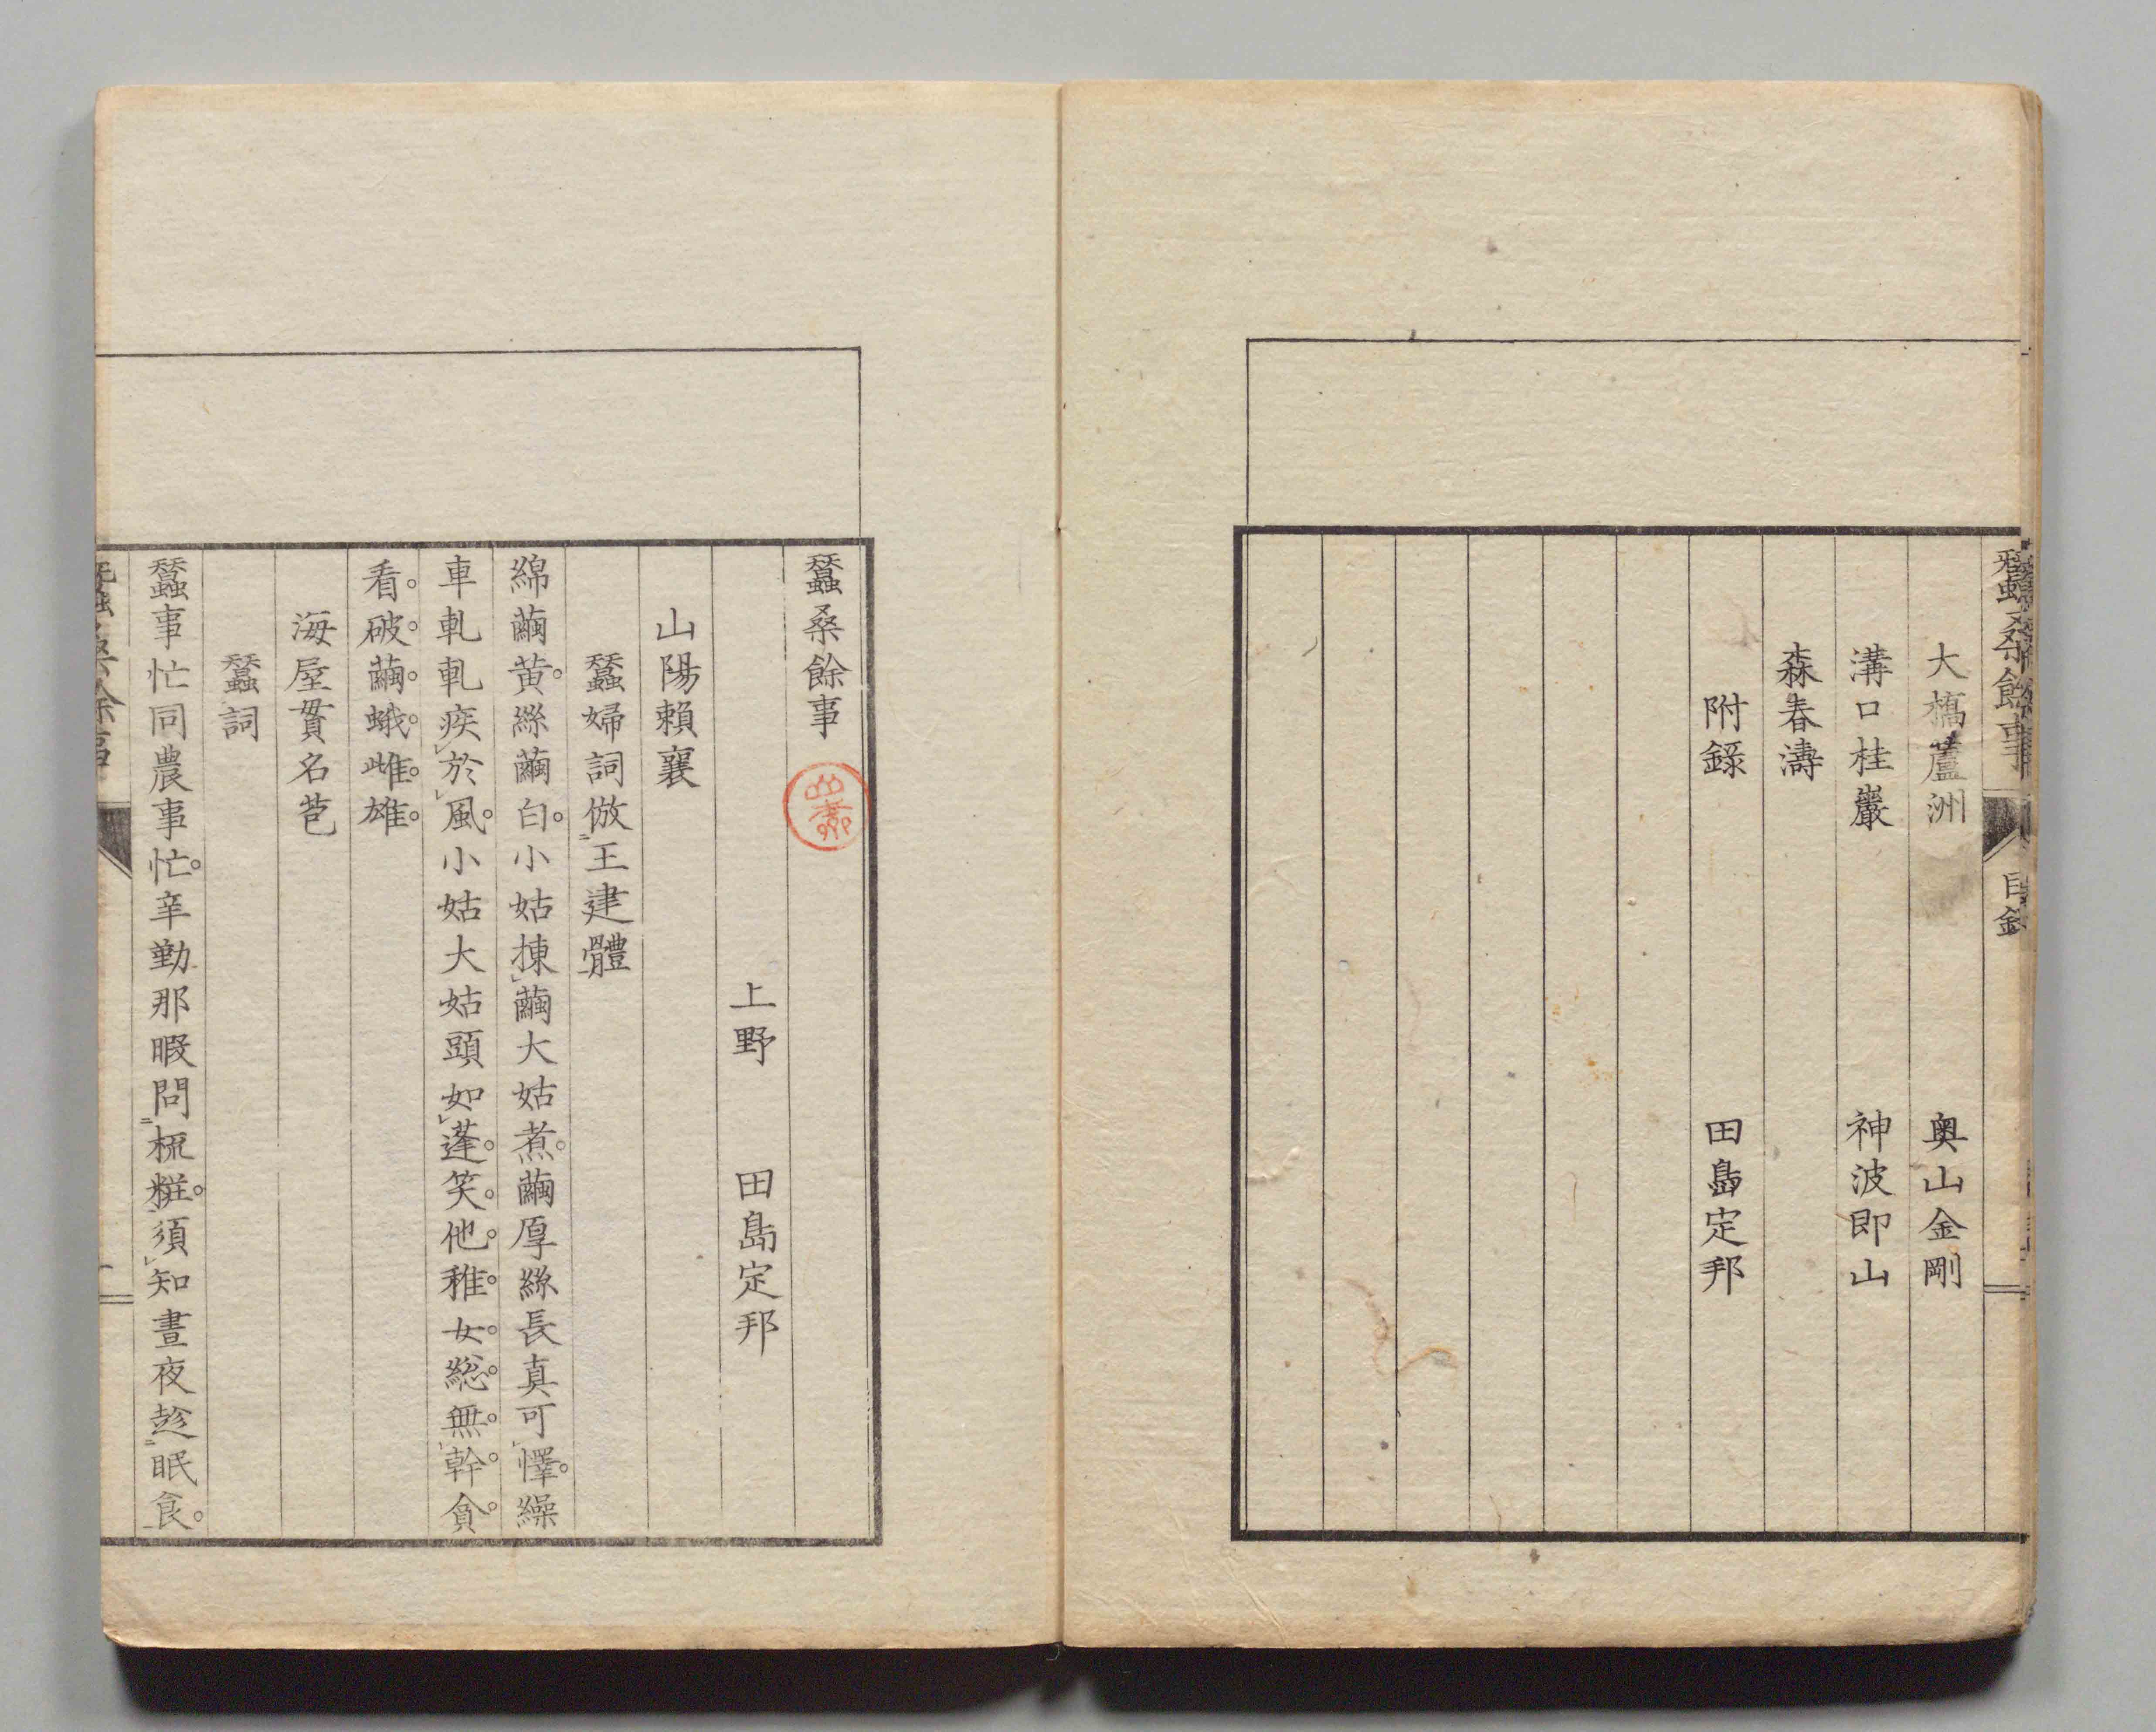 蠶桑餘事
目錄
大橋蘆洲
奥山金剛
溝口桂巖
神波即山
森春濤
附錄
田島定邦
蠶桑餘事
上野
田島定邦
山陽賴襄
蠶婦詞倣王建體
綿繭黄。絲繭白。小姑揀繭大姑煮。繭厚絲長真可懌。繰
車軋軋疾於風。小姑大姑頭如蓬。笑。他。稚。女。總。無。幹。貪。
看。破。繭。蛾。雌。雄。
海屋貫名苞
蠶詞
蠶事忙同農事忙。辛勤那暇問梳糚。須知晝夜趁眠食。
蠶桑餘事